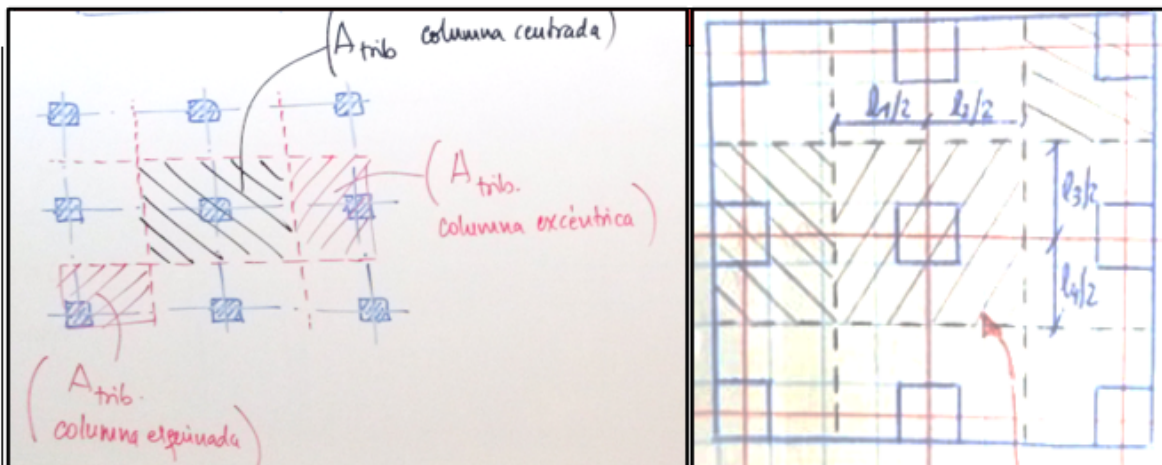 (A trib columna centrada)
(A trib.
columna excéntrica)
(A trib.
columna esquinada)
l1/2 l2/2
l3/2
l4/2